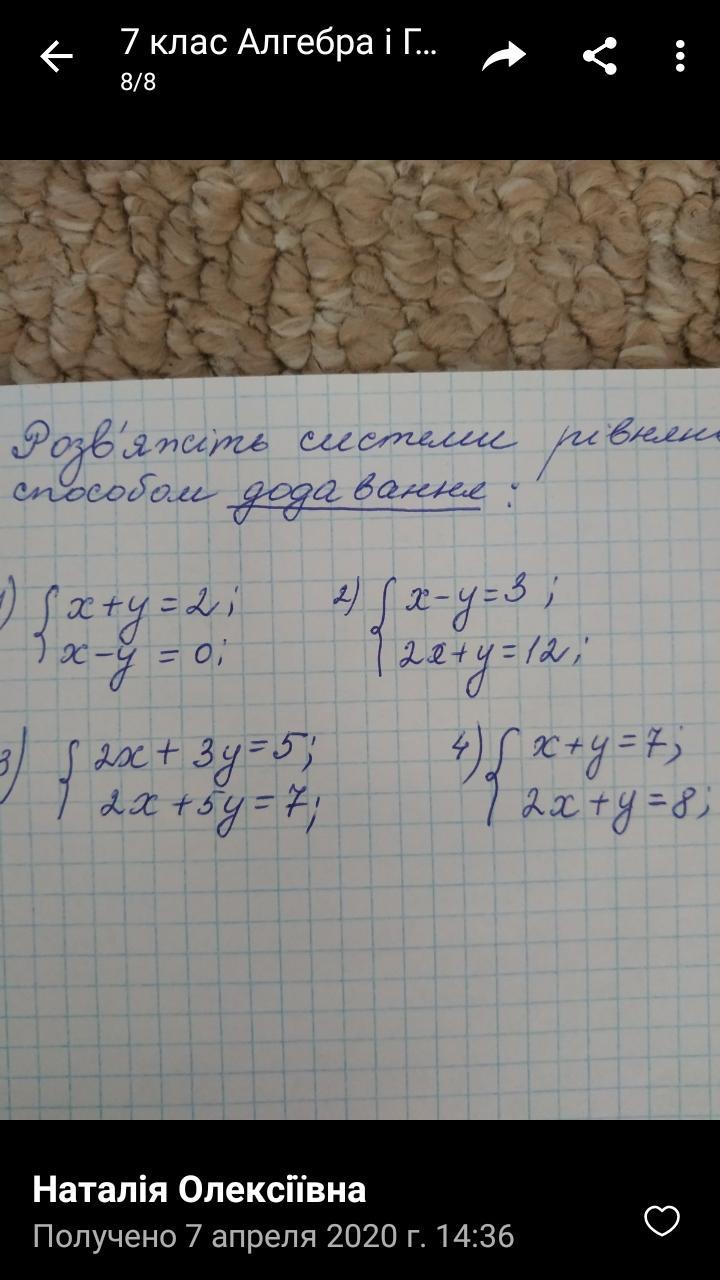 7 клас Алгебра і Г...
8/8
Розв'яжіть системи рівнянь
способом додавання:
1) { x+y=2; 2) { x-y=3;
x-y=0; 2x+y=12;
3) { 2x+3y=5; 4) { x+y=7;
2x+5y=7; 2x+y=8;
Наталія Олексіївна
Получено 7 апреля 2020 г. 14:36